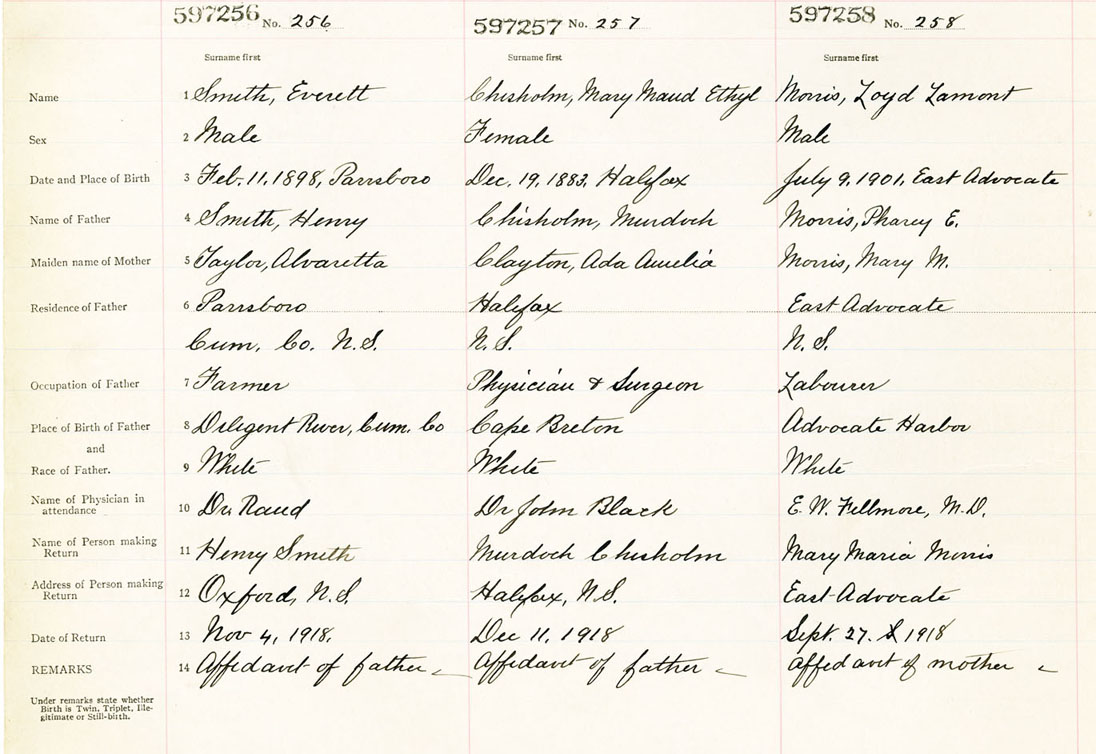 597256 No. 256 597257 No. 257 597258 No. 258
Surname first Surname first Surname first
Name 1 Smith, Everett Chisholm, Mary Maud Ethyl Morris, Loyd Lamont
Sex 2 Male Female Male
Date and Place of Birth 3 Feb. 11, 1898, Parrsboro Dec. 19, 1883, Halifax July 9, 1901, East Advocate
Name of Father 4 Smith, Henry Chisholm, Murdoch Morris, Pharey E.
Maiden name of Mother 5 Taylor, Alvaretta Clayton, Ada Aurelia Morris, Mary M.
Residence of Father 6 Parrsboro Halifax East Advocate
Cum. Co. N.S. N.S. N.S.
Occupation of Father 7 Farmer Physician & Surgeon Labourer
Place of Birth of Father 8 Diligent River, Cum. Co Cape Breton Advocate Harbor
and
Race of Father. 9 White White White
Name of Physician in
attendance 10 Dr. Rand Dr John Black E. W. Fillmore, M.D.
Name of Person making
Return 11 Henry Smith Murdoch Chisholm Mary Maria Morris
Address of Person making
Return 12 Oxford, N.S. Halifax, N.S. East Advocate
Date of Return 13 Nov 4, 1918. Dec 11, 1918 Sept. 27. 1918
REMARKS 14 Affidavit of father Affidavit of father affidavit of mother
Under remarks state whether
Birth is Twin, Triplet, Ille-
gitimate or Still-birth.